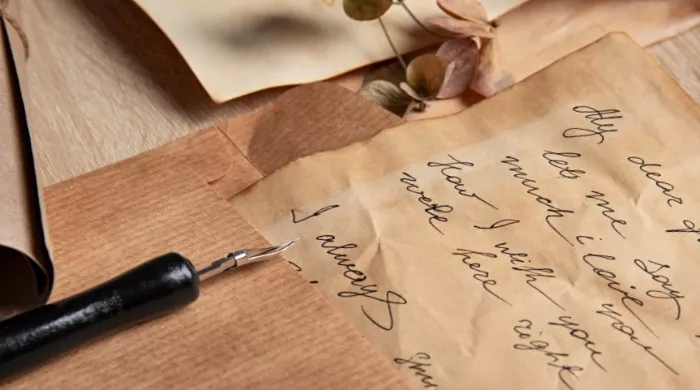 My dear
let me Say
much i love you
How I wish you
were here right
I always